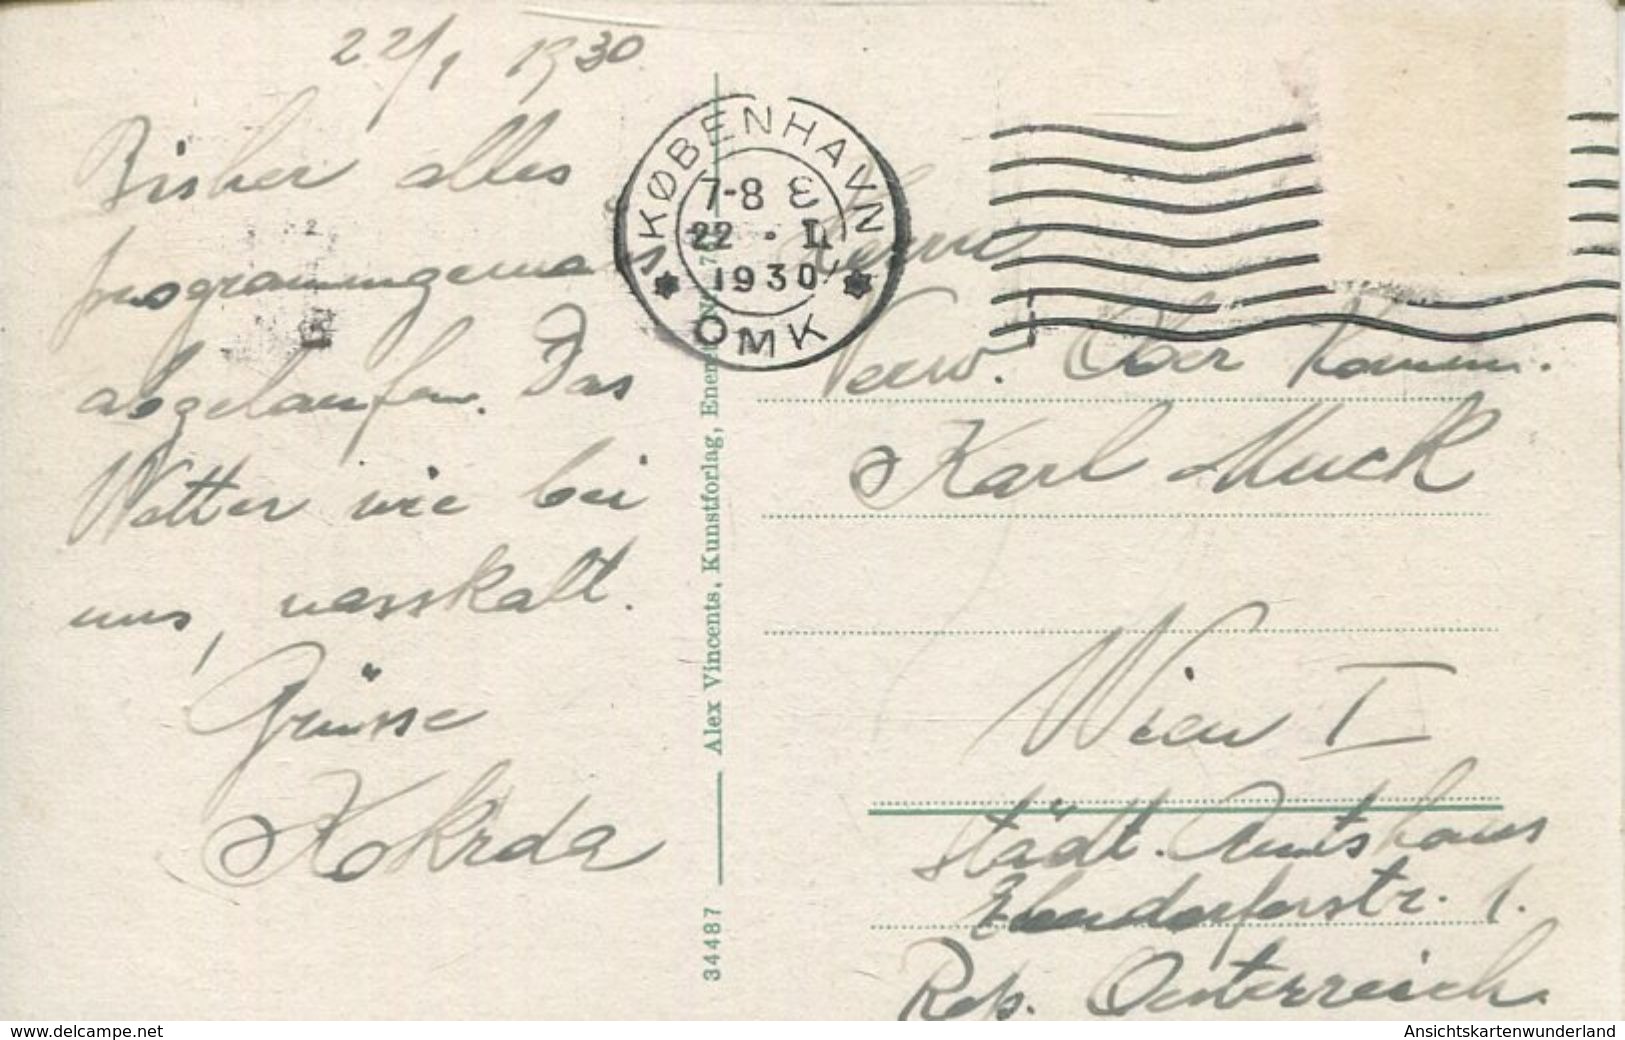 22/1 1930
Bisher alles
programmgemäss
abgelaufen. Das
Wetter wie bei
uns, nasskalt.
Grüsse
Kokrda
KØBENHAVN
7-8 E
22 · I
1930
OMK
Alex Vincents, Kunstforlag, Eneret
34487
Herrn
Verw. Ober Komm.
Karl Muck
Wien I
Städt. Amtshaus
Ebendorferstr. 1.
Rep. Oesterreich.
www.delcampe.net
Ansichtskartenwunderland